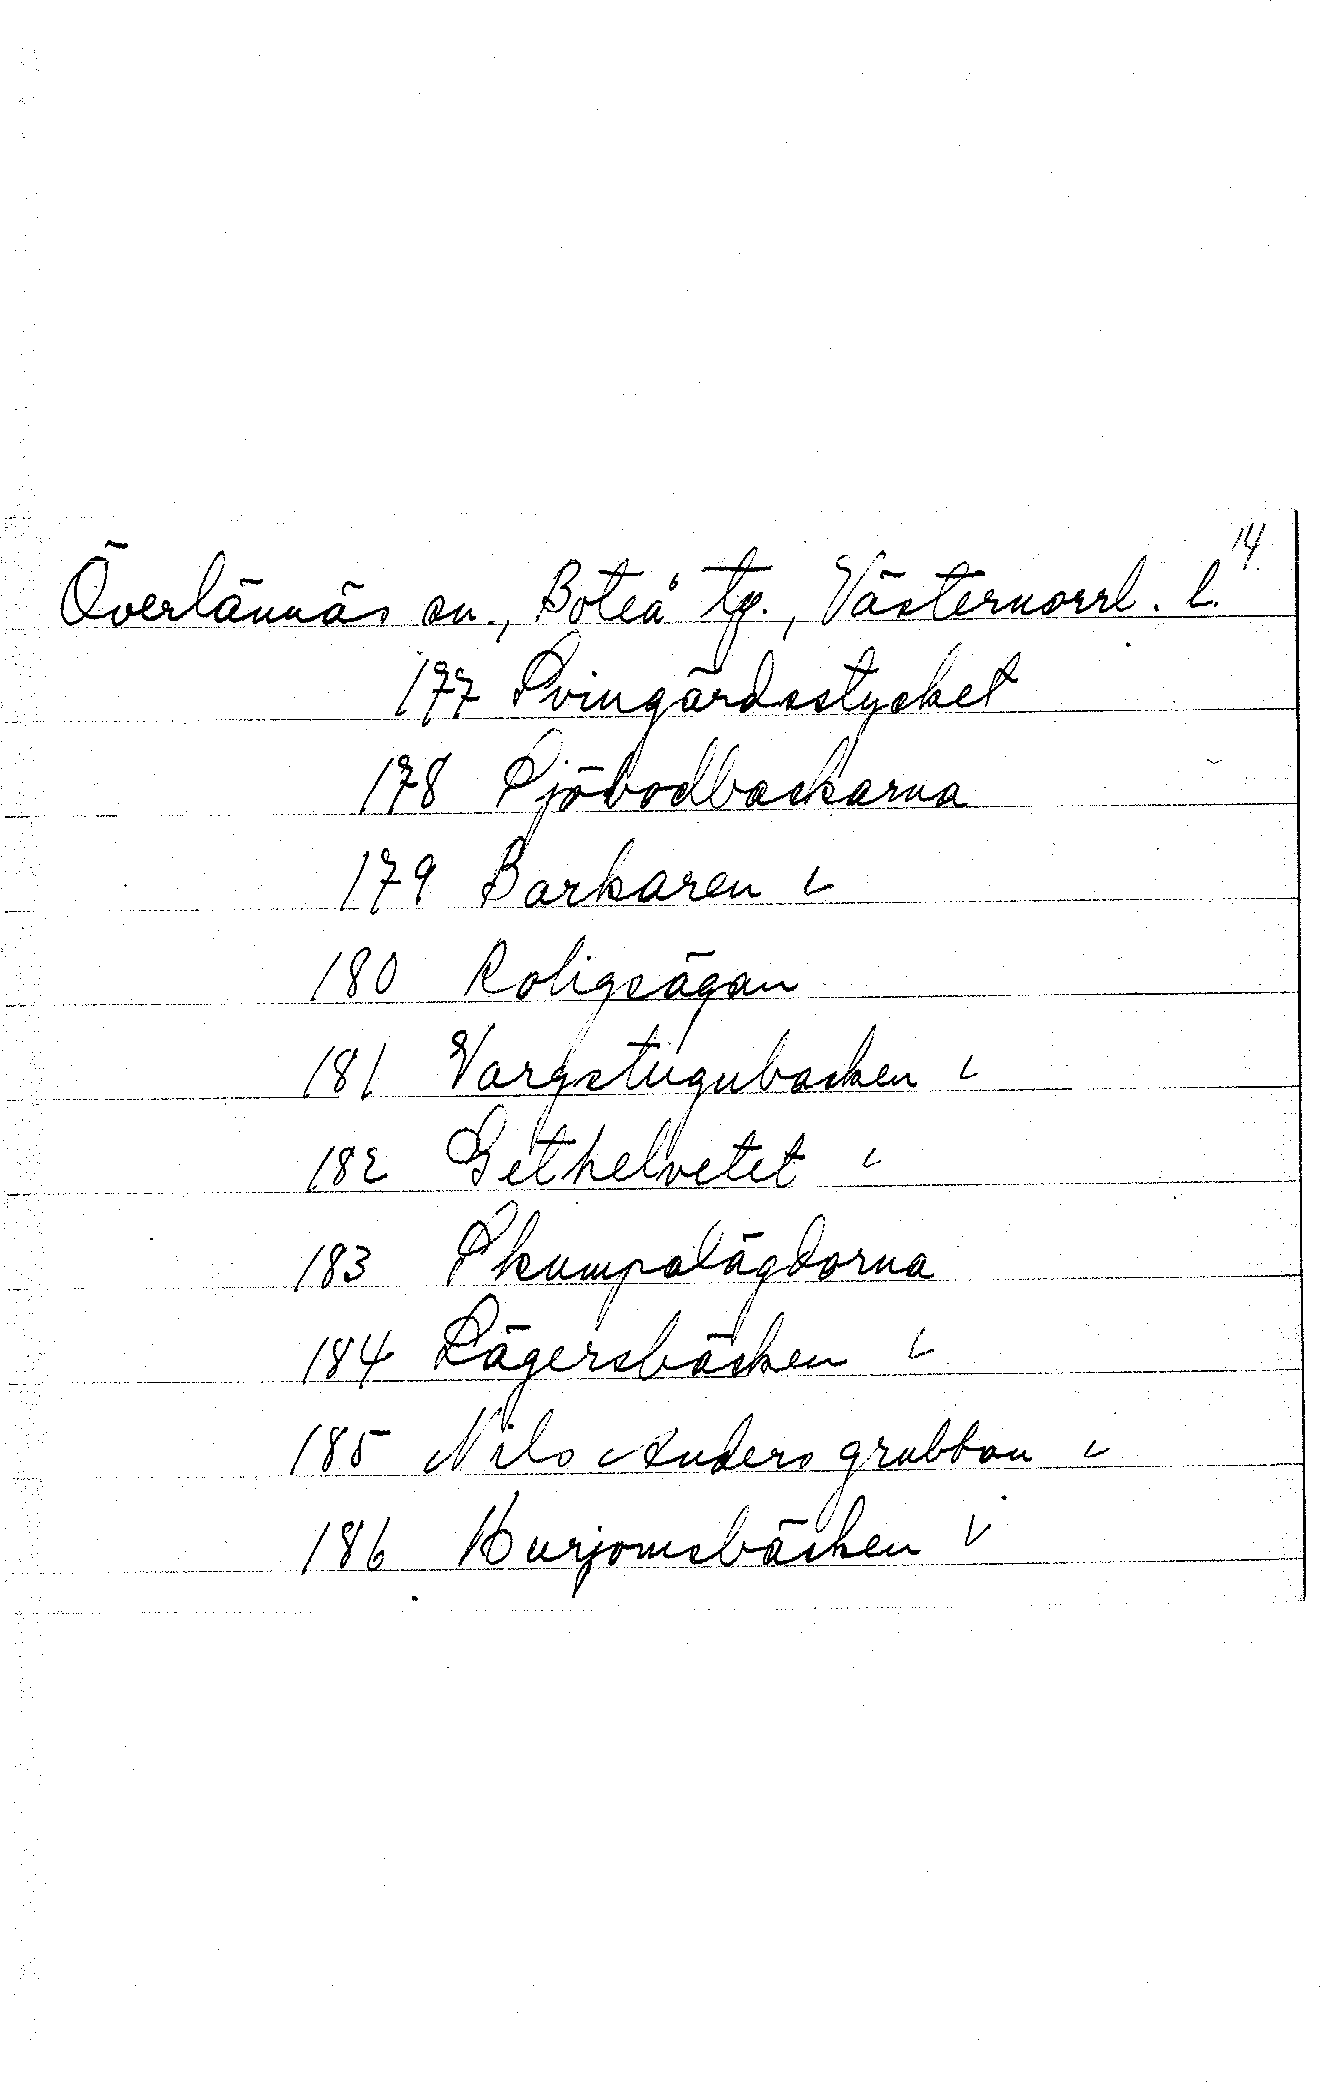 14.
Överlännäs sn., Boteå tg., Västernorrl. l.
177 Svingärdsstycket
178 Sjöbodbackarna
179 Barkaren ✓
180 Roligsägan
181 Vargstugubacken ✓
182 Gethelvetet ✓
183 Skumpalägdorna
184 Lägersbäcken ✓
185 Nils Anders grubban ✓
186 Kurjomsbäcken ✓